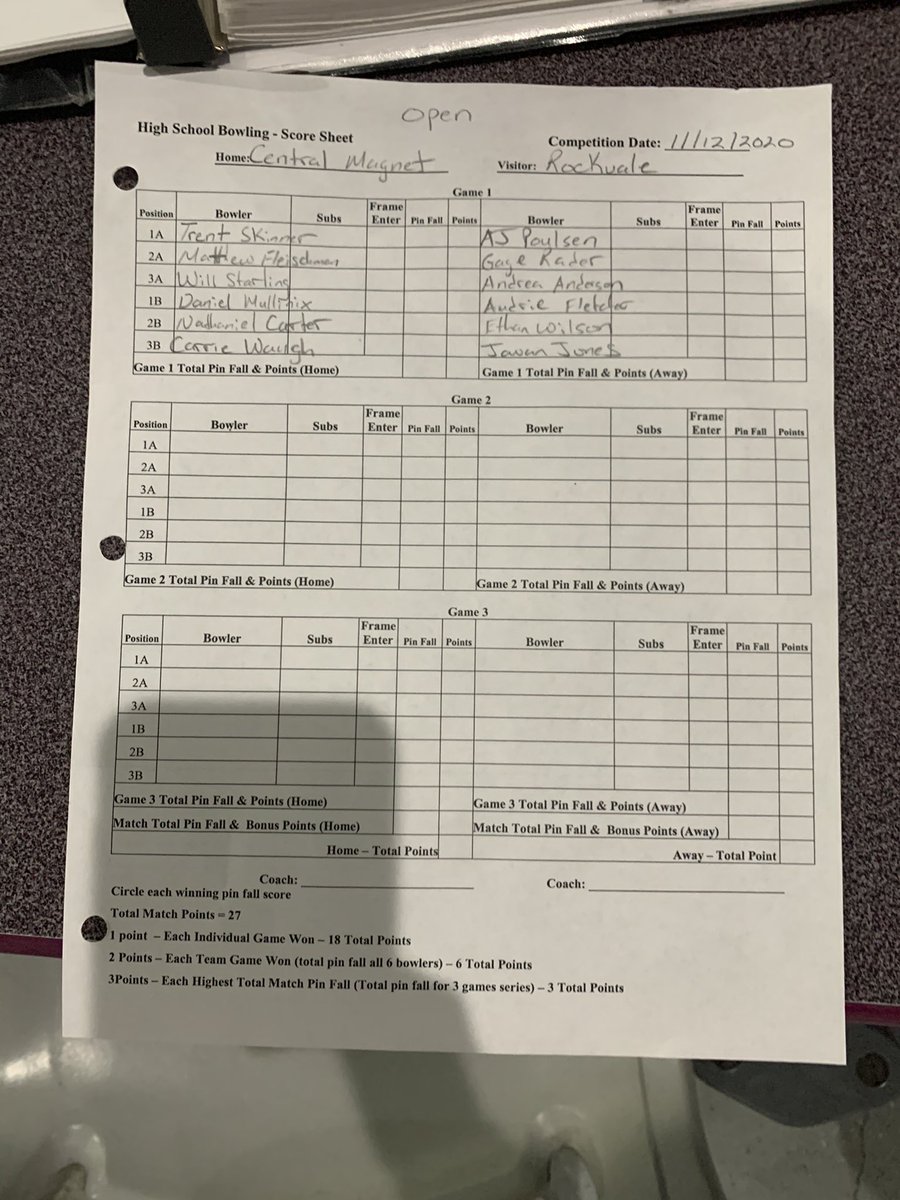 Open
High School Bowling - Score Sheet
Competition Date: 11/12/2020
Home: Central Magnet Visitor: Rockvale
Game 1
Position Bowler Subs Frame Enter Pin Fall Points Bowler Subs Frame Enter Pin Fall Points
1A Trent Skinner AJ Poulsen
2A Matthew Fleischman Gage Rador
3A Will Starling Andrea Anderson
1B Daniel Mullinix Audrie Fletcher
2B Nathaniel Carter Ethan Wilson
3B Carrie Waugh Javan Jones
Game 1 Total Pin Fall & Points (Home) Game 1 Total Pin Fall & Points (Away)
Game 2
Position Bowler Subs Frame Enter Pin Fall Points Bowler Subs Frame Enter Pin Fall Points
1A
2A
3A
1B
2B
3B
Game 2 Total Pin Fall & Points (Home) Game 2 Total Pin Fall & Points (Away)
Game 3
Position Bowler Subs Frame Enter Pin Fall Points Bowler Subs Frame Enter Pin Fall Points
1A
2A
3A
1B
2B
3B
Game 3 Total Pin Fall & Points (Home) Game 3 Total Pin Fall & Points (Away)
Match Total Pin Fall & Bonus Points (Home) Match Total Pin Fall & Bonus Points (Away)
Home – Total Points Away – Total Point
Coach: Coach:
Circle each winning pin fall score
Total Match Points = 27
1 point – Each Individual Game Won – 18 Total Points
2 Points – Each Team Game Won (total pin fall all 6 bowlers) – 6 Total Points
3Points – Each Highest Total Match Pin Fall (Total pin fall for 3 games series) – 3 Total Points